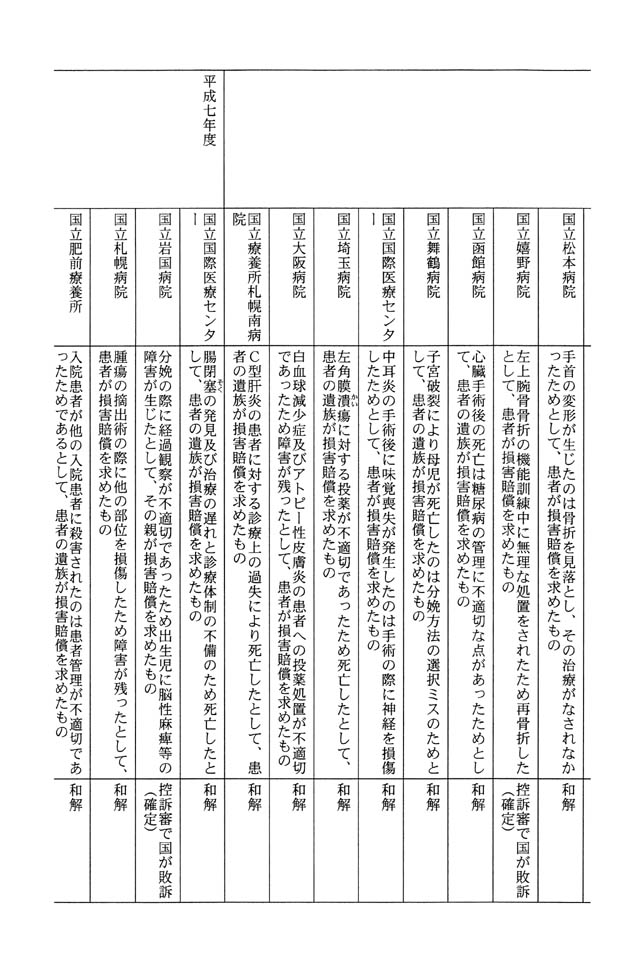 国立松本病院
手首の変形が生じたのは骨折を見落とし、その治療がなされなか
ったためとして、患者が損害賠償を求めたもの
和解
国立嬉野病院
左上腕骨骨折の機能訓練中に無理な処置をされたため再骨折した
として、患者が損害賠償を求めたもの
控訴審で国が敗訴
(確定)
国立函館病院
心臓手術後の死亡は糖尿病の管理に不適切な点があったためとし
て、患者の遺族が損害賠償を求めたもの
和解
国立舞鶴病院
子宮破裂により母児が死亡したのは分娩方法の選択ミスのためと
して、患者の遺族が損害賠償を求めたもの
和解
国立国際医療センタ
ー
中耳炎の手術後に味覚喪失が発生したのは手術の際に神経を損傷
したためとして、患者が損害賠償を求めたもの
和解
国立埼玉病院
左角膜潰瘍に対する投薬が不適切であったため死亡したとして、
かい
患者の遺族が損害賠償を求めたもの
和解
国立大阪病院
白血球減少症及びアトピー性皮膚炎の患者への投薬処置が不適切
であったため障害が残ったとして、患者が損害賠償を求めたもの
和解
国立療養所札幌南病
院
C型肝炎の患者に対する診療上の過失により死亡したとして、患
者の遺族が損害賠償を求めたもの
和解
平成七年度
国立国際医療センタ
ー
腸閉塞の発見及び治療の遅れと診療体制の不備のため死亡したと
そく
して、患者の遺族が損害賠償を求めたもの
和解
国立岩国病院
分娩の際に経過観察が不適切であったため出生児に脳性麻痺等の
障害が生じたとして、その親が損害賠償を求めたもの
控訴審で国が敗訴
(確定)
国立札幌病院
腫瘍の摘出術の際に他の部位を損傷したため障害が残ったとして、
患者が損害賠償を求めたもの
和解
国立肥前療養所
入院患者が他の入院患者に殺害されたのは患者管理が不適切であ
ったためであるとして、患者の遺族が損害賠償を求めたもの
和解